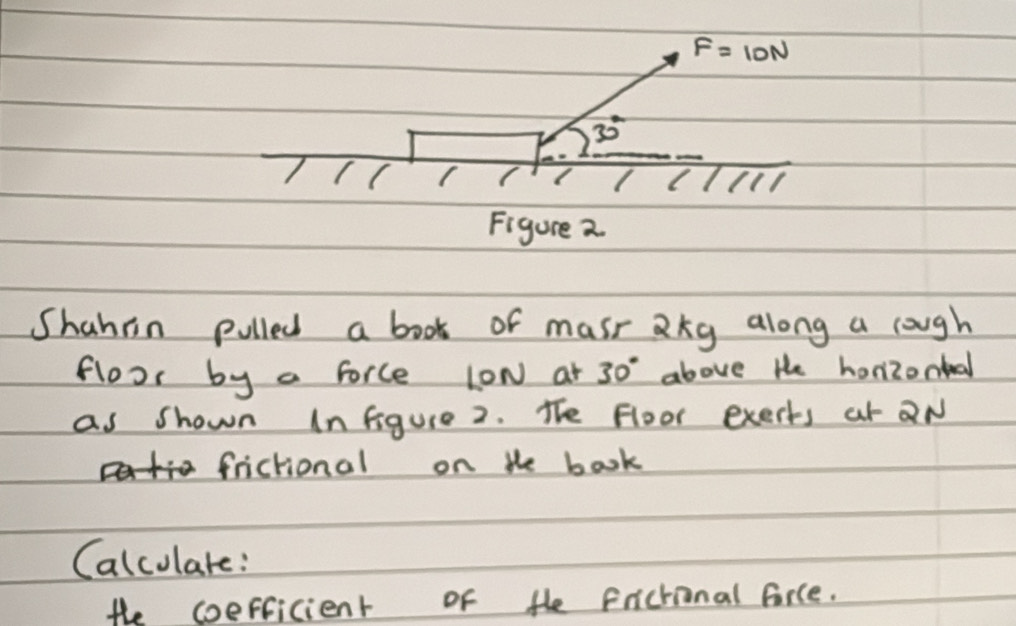 F = 10N
30°
Figure 2
Shahrin pulled a book of mass 2kg along a rough
floor by a force 10N at 30° above the horizontal
as shown in figure 2. The Floor exerts at 2N
frictional on the book
Calculate:
the coefficient of the frictional force.